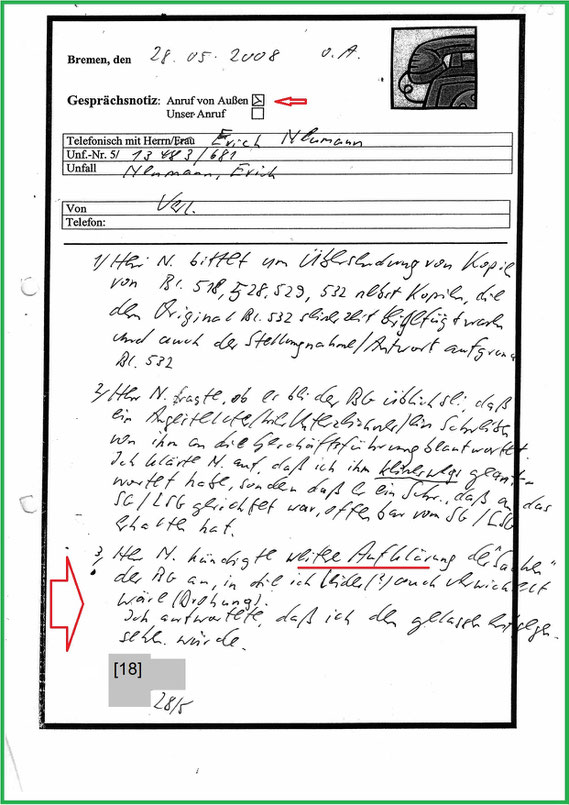 Bremen, den 28.05.2008 o.A.
Gesprächsnotiz: Anruf von Außen
Unser Anruf
Telefonisch mit Herrn/Frau Erich Neumann
Unf.-Nr. 5/ 13 483/681
Unfall Neumann, Erich
Von Verl.
Telefon:
1) Herr N. bittet um Übersendung von Kopie
von Bl. 518, 528, 529, 532 nebst Kopien, die
dem Original Bl. 532 seinerzeit beigefügt waren
und auch der Stellungnahme/Antwort aufgrund
Bl. 532
2) Herr N. fragte, ob es bei der BG üblich sei, daß
ein Angestellter/ ein Schreiben
von ihm an die Geschäftsführung beantwortet.
Ich klärte N. auf, daß ich ihm keineswegs geant-
wortet habe, sondern daß er ein Schr., daß an das
SG/LSG gerichtet war, offenbar vom SG/LSG
erhalten hat.
3) Herr N. kündigte weitere Aufklärung der "Sachen"
der BG an, in die ich leider(?) auch verwickelt
wäre (Drohung).
Ich antwortete, daß ich dem gelassen entgegen-
sehen würde.
[18]
28/5